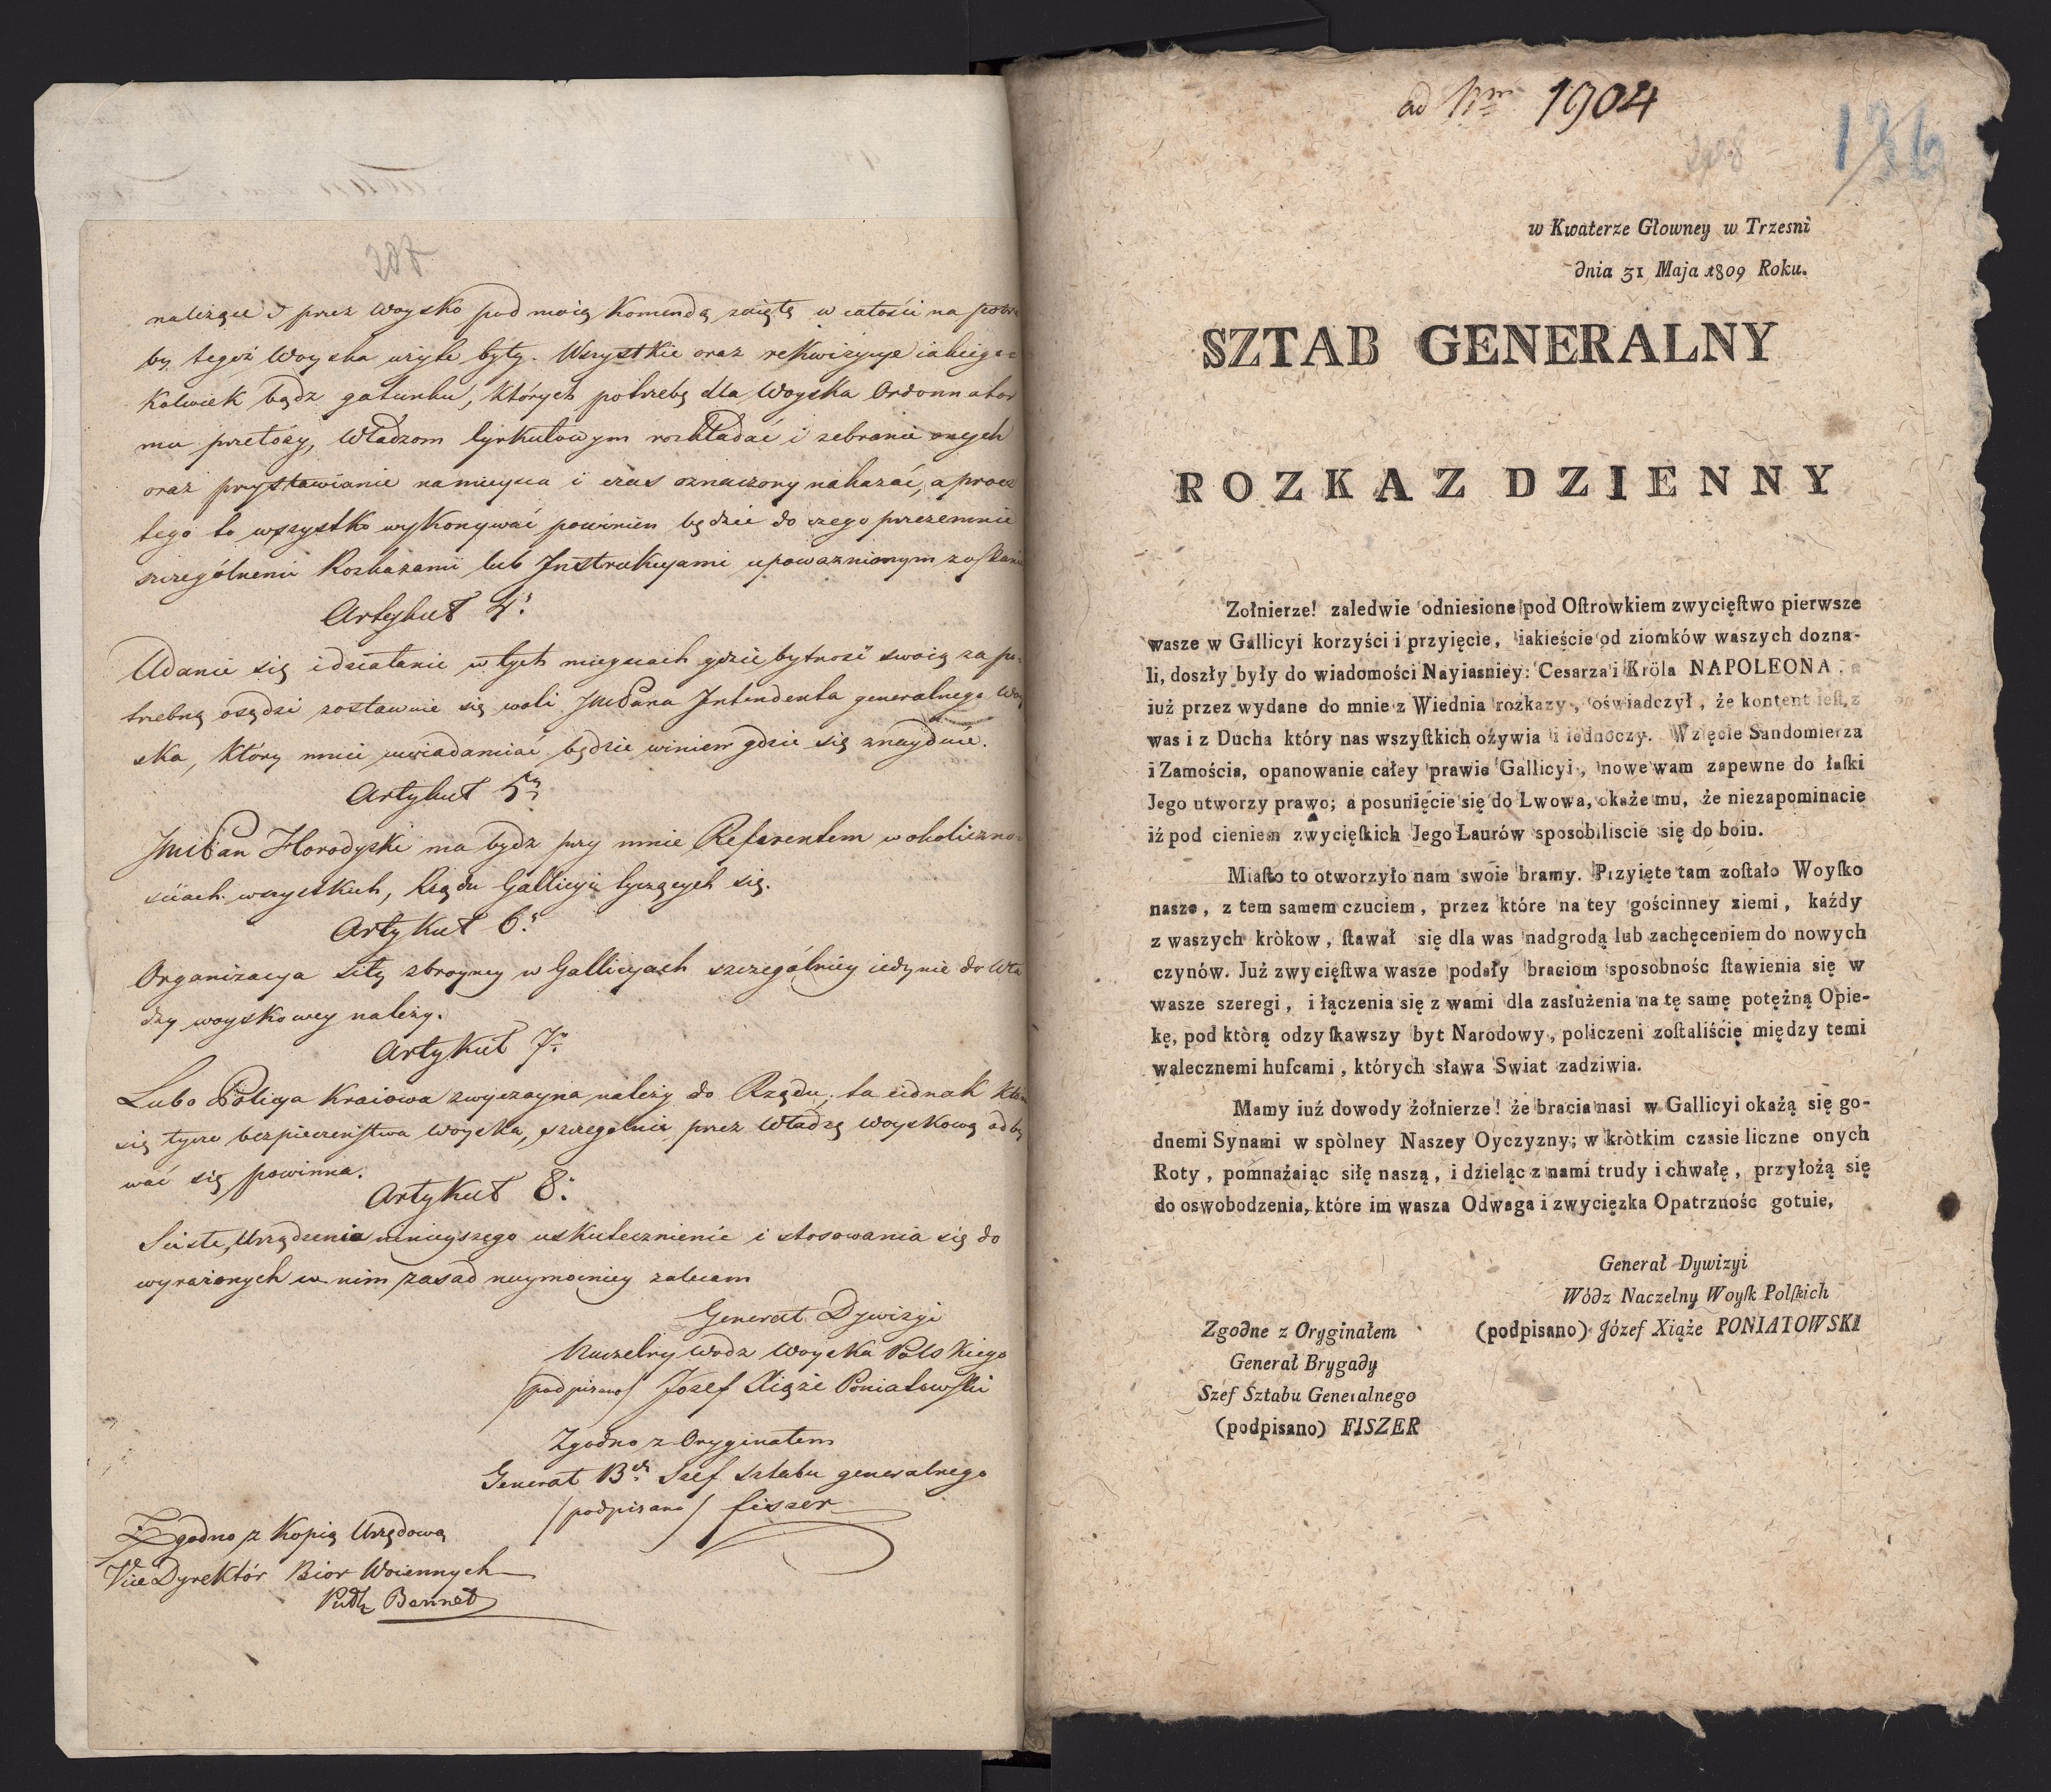 należące i przez Woysko pod moią Komendą zaięte w całości na potrze
by tegoż Woyska użyte były. Wszystkie oraz rekwizycye iakiego-
kolwiek bądz gatunku, których potrzebę dla Woyska Ordonnator
mu przełoży, Władzom Cyrkułowym rozkładać i zebranie onych
oraz przystawianie na mieysca i czas oznaczony nakazać, a prócz
tego to wszystko wykonywać powinien będzie do czego przezemnie
szczególnemi Rozkazami lub Instrukcyami upoważnionym zostanie
Artykuł 4:
Udanie się i działanie w tych mieyscach gdzie bytność swoię za po-
trzebną osądzi zostawuie się woli JmćPana Intendenta generalnego Woy
ska, który mnie uwiadamiać będzie winien gdzie się znayduie.
Artykuł 5:
JmćPan Horodyski ma bydz przy mnie Referentem w okoliczno-
ściach wszystkich, Rządu Gallicyi tyczących się.
Artykuł 6:
Organizacya siły zbroyney w Gallicyach szczególniey iedynie do Wła
dzy woyskowey należy.
Artykuł 7:
Lubo Policya Kraiowa zwyczayna należy do Rządu, ta iednak Która
się tycze bezpieczeństwa Woyska, szczególnie przez Władzę Woyskową odby
wać się powinna.
Artykuł 8:
Ścisłe, Urządzenia ninieyszego uskutecznienie i stosowania się do
wyrażonych w nim zasad naymocniey zalecam
Generał Dywizyi
Naczelny Wodz Woyska Polskiego
/podpisano/ Józef Xiąże Poniatowski
Zgodno z Oryginałem
Generał B^dy Szef Sztabu generalnego
/podpisano/ fiszer
Zgodno z Kopią Urzędową
ViceDyrektór Biór Woiennych
Bennet
ad Nrm 1904
136
w Kwaterze Głowney w Trzesni
dnia 31 Maja 1809 Roku.
SZTAB GENERALNY
ROZKAZ DZIENNY
Zołnierze! zaledwie odniesione pod Oſtrowkiem zwycięſtwo pierwsze
wasze w Gallicyi korzyści i przyięcie, iakieście od ziomków waszych dozna-
li, doszły były do wiadomości Nayiasniey: Cesarza i Króla NAPOLEONA, a
iuż przez wydane do mnie z Wiednia rozkazy, oświadczył, że kontent ieſt, z
was i z Ducha który nas wszyſtkich ożywia i iednoczy. Wzięcie Sandomierza
i Zamościa, opanowanie całey prawie Gallicyi, nowe wam zapewne do łaſki
Jego utworzy prawo; a posunięcie się do Lwowa, okaże mu, że niezapominacie
iż pod cieniem zwycięſkich Jego Laurów sposobiliscie się do boiu.
Miaſto to otworzyło nam swoie bramy. Przyięte tam zoſtało Woyſko
nasze, z tem samem czuciem, przez które na tey gościnney ziemi, każdy
z waszych kròkow, ſtawał się dla was nadgrodą lub zachęceniem do nowych
czynów. Już zwycięſtwa wasze podały braciom sposobnośc ſtawienia się w
wasze szeregi, i łączenia się z wami dla zasłużenia na tę samę potężną Opie-
kę, pod ktòrą odzyſkawszy byt Narodowy, policzeni zoſtaliście między temi
walecznemi hufcami, których sława Swiat zadziwia.
Mamy iuż dowody żołnierze! że bracia nasi w Gallicyi okażą się go-
dnemi Synami w spòlney Naszey Oyczyzny; w kròtkim czasie liczne onych
Roty, pomnażaiąc siłę naszą, i dzieląc z nami trudy i chwałę, przyłożą się
do oswobodzenia, które im wasza Odwaga i zwycięzka Opatrznośc gotuie,
Generał Dywizyi
Wódz Naczelny Woyſk Polſkich
(podpisano) Józef Xiąże PONIATOWSKI
Zgodne z Oryginałem
Generał Brygady
Szef Sztabu Generalnego
(podpisano) FISZER